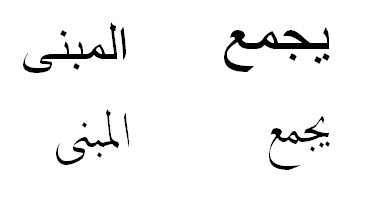 يجمع المبنى
يجمع المبنى